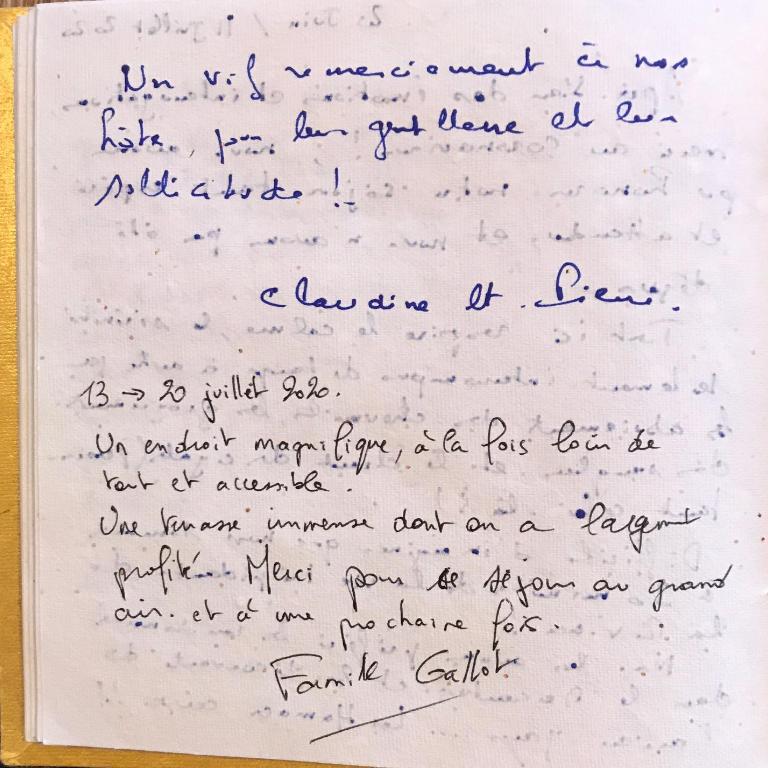 Un vif remerciement à nos
hôtes, pour leur gentillesse et leur
sollicitude !
Claudine et Pierre.
13 → 20 juillet 2020.
Un endroit magnifique, à la fois loin de
tout et accessible.
Une terrasse immense dont on a largement
profité. Merci pour ce séjour au grand
air. et à une prochaine fois.
Famille Gallot